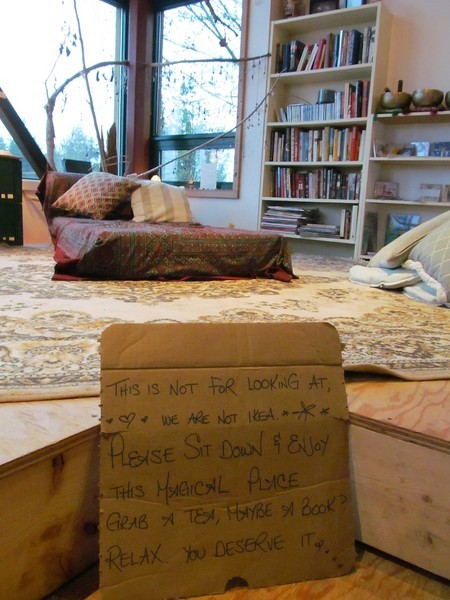 THIS IS NOT FOR LOOKING AT,
WE ARE NOT IKEA.
PLEASE SIT DOWN & ENJOY
THIS MAGICAL PLACE
GRAB A TEA, MAYBE A BOOK?
RELAX. YOU DESERVE IT.